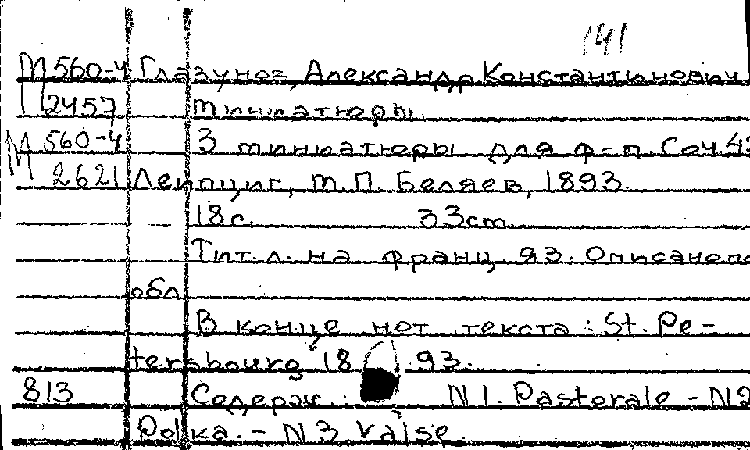 141
М 560-4 Глазунов, Александр Константинович
2457 Миниатюры
М 560-4 3 миниатюры для ф-п. Соч. 42
2621 Лейпциг, М.П. Беляев, 1893.
18 с. 33 cm
Тит. л. на франц. яз. Описано по
обл.
В конце нот текста: St. Pe-
tersbourg 18 93.
813 Содерж.: N 1. Pastorale - N 2
Polka. - N 3 Valse.